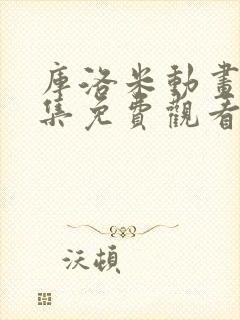 庫洛米動畫
集免費觀看
沃頓